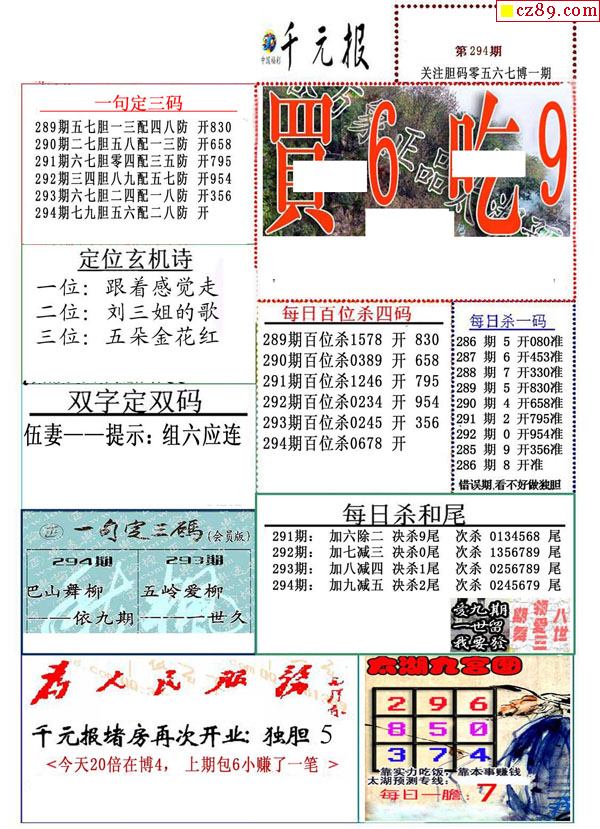 cz89.com
中国福彩
千元报
第294期
关注胆码零五六七博一期
一句定三码
289期五七胆一三配四八防 开830
290期二七胆五八配一三防 开658
291期六七胆零四配三五防 开795
292期三四胆八九配五七防 开954
293期六七胆二四配一八防 开356
294期七九胆五六配二八防 开
買6 吃9
定位玄机诗
一位：跟着感觉走
二位：刘三姐的歌
三位：五朵金花红
每日百位杀四码
289期百位杀1578 开 830
290期百位杀0389 开 658
291期百位杀1246 开 795
292期百位杀0234 开 954
293期百位杀0245 开 356
294期百位杀0678 开
每日杀一码
286 期 5 开080准
287 期 6 开453准
288 期 7 开330准
289 期 5 开830准
290 期 4 开658准
291 期 2 开795准
292 期 0 开954准
285 期 9 开356准
286 期 8 开准
错误期,看不好做独胆
双字定双码
伍妻——提示：组六应连
每日杀和尾
291期： 加六除二 决杀9尾 次杀 0134568 尾
292期： 加七减三 决杀0尾 次杀 1356789 尾
293期： 加八减四 决杀1尾 次杀 0256789 尾
294期： 加九减五 决杀2尾 次杀 0245679 尾
正 一句定三碼(会员版)
294期
巴山舞柳
———依九期
293期
五岭爱柳
————世久
玄九期
一世留
我要發
为人民服务
千元报堵房再次开业：独胆 5
<今天20倍在博4， 上期包6小赚了一笔 >
太湖九宫图
2 9 6
8 5 0
3 7 4
靠实力吃饭，靠本事赚钱
太湖预测专线：
每日一胆：7